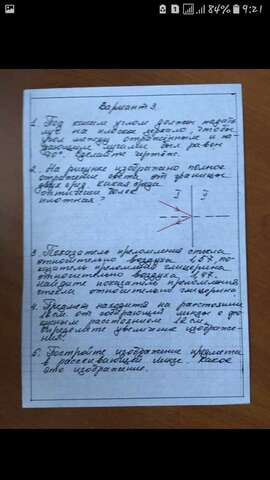 84% 9:21
Вариант 3.
1. Под каким углом должен падать
луч на плоское зеркало, чтобы
угол между отраженным и па-
дающим лучами был равен
70°. Сделайте чертёж.
2. На рисунке изображено полное
отражение света от границы
двух сред. Какая среда
оптически более
плотная?
I I
3. Показатель преломления стекла
относительно воздуха 1,57, по-
казатель преломления глицерина
относительно воздуха
Найдите показатель преломления
стекла относительно глицерина
4. Предмет находится на расстоянии
18 см от собирающей линзы с фо-
кусным расстоянием 12 см.
Определите увеличение изображе-
ния.
5. Постройте изображение предмета
в рассеивающей линзе. Какое
это изображение.